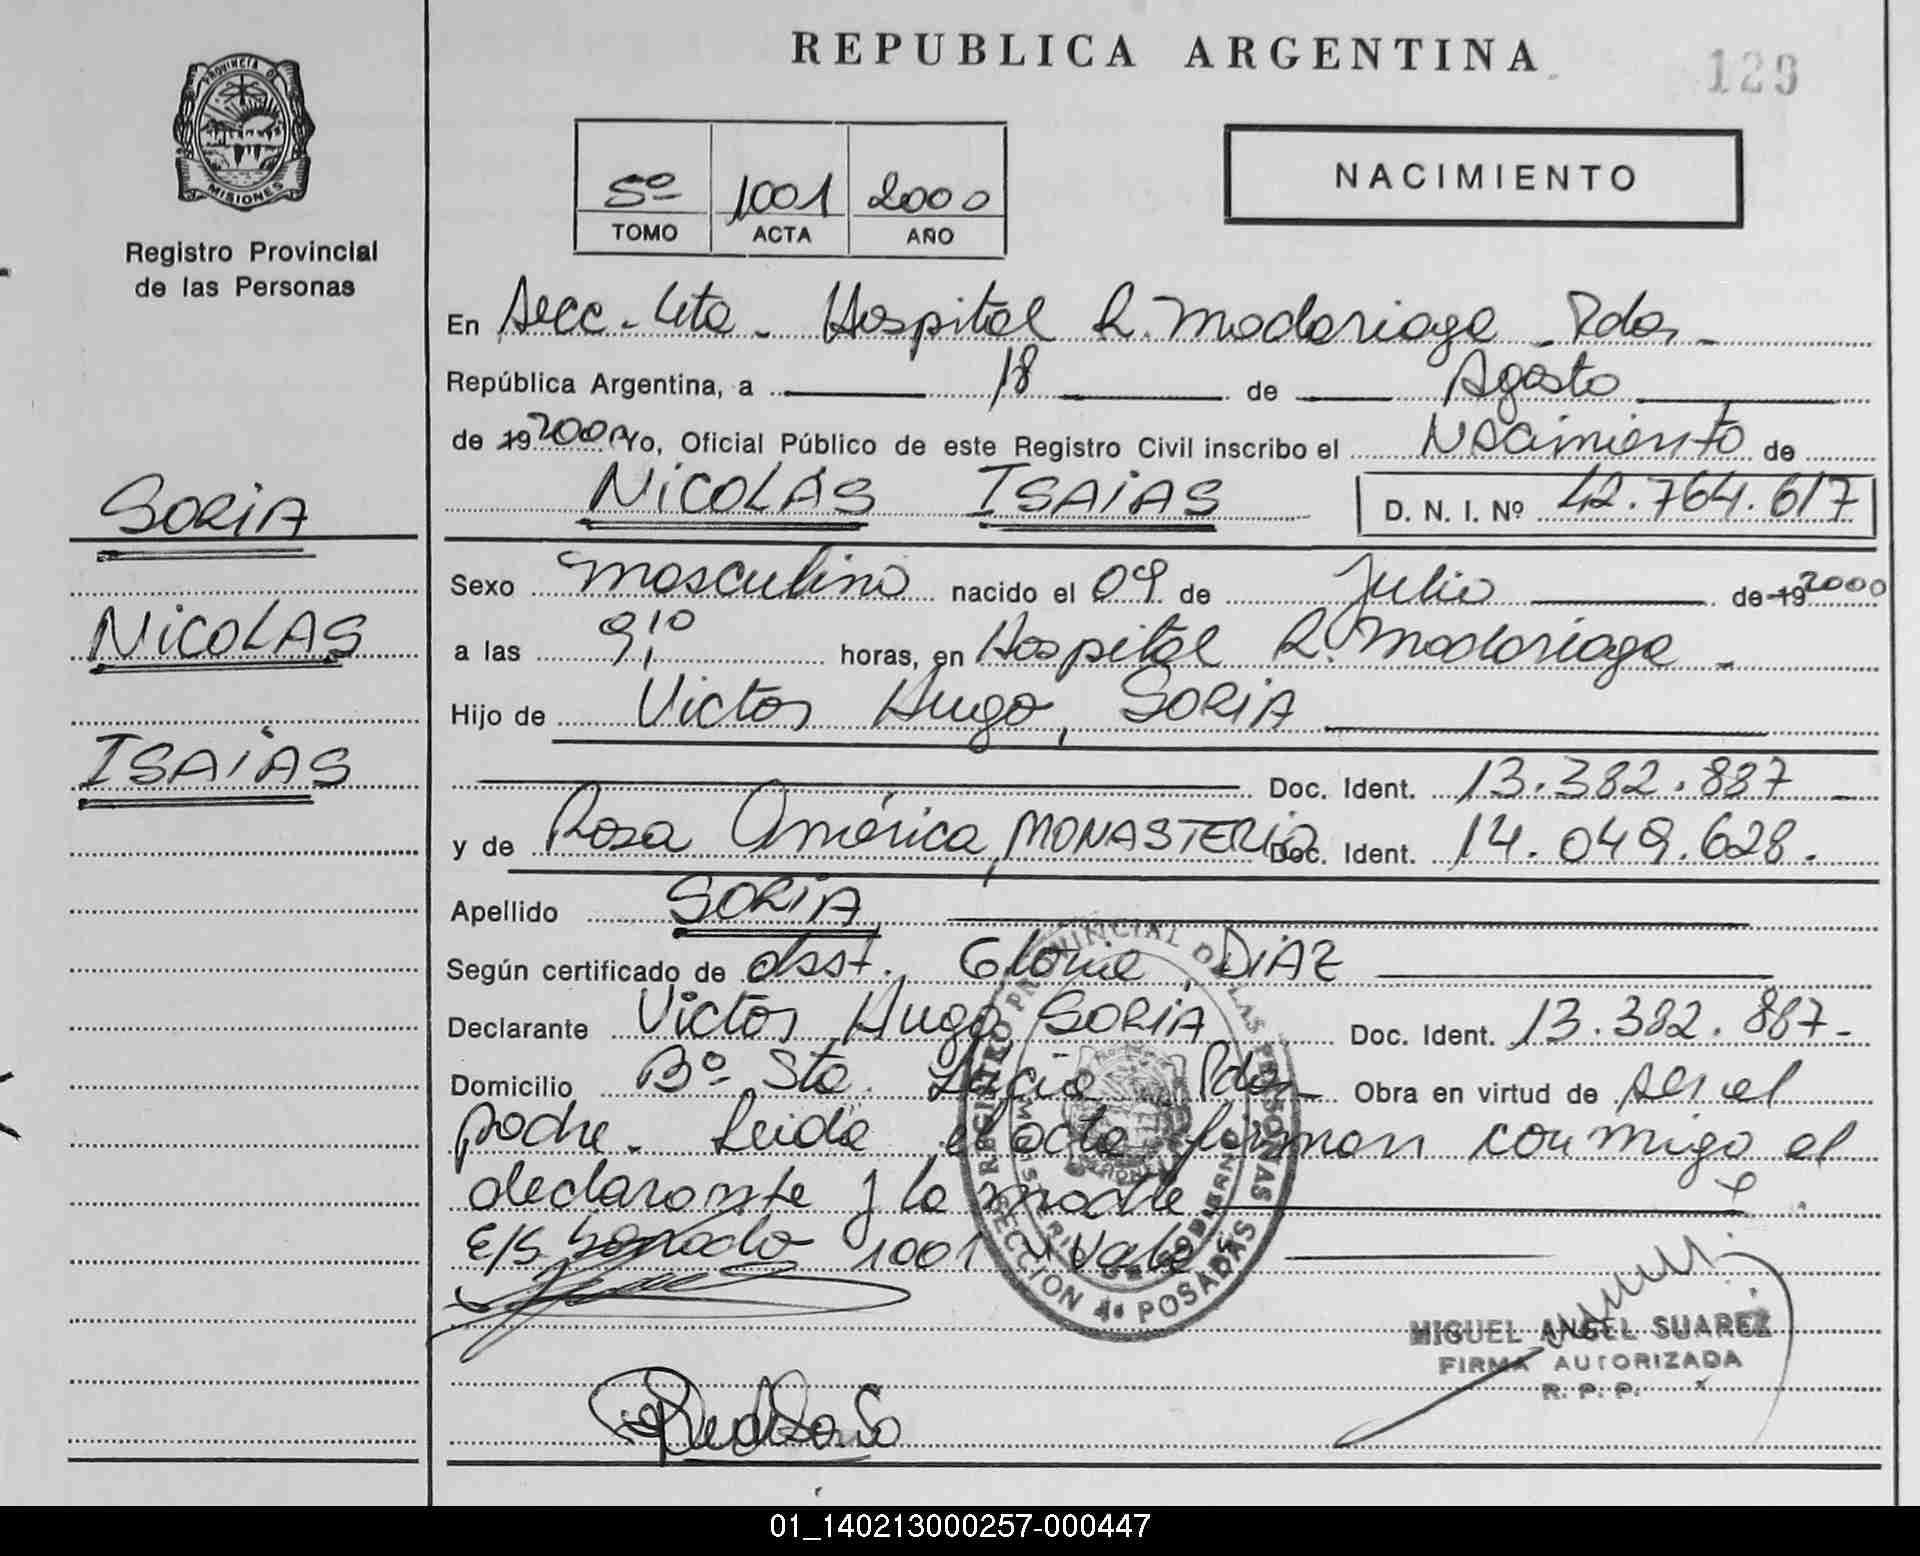 REPUBLICA ARGENTINA
129
PROVINCIA DE
MISIONES
Registro Provincial
de las Personas
5º 1001 2000
TOMO ACTA AÑO
NACIMIENTO
En Secc. 4ta. Hospital R. Madariaga - Pdas -
República Argentina, a 18 de Agosto
de 19 2000 Yo, Oficial Público de este Registro Civil inscribo el Nacimiento de
NICOLAS ISAIAS D. N. I. Nº 42.764.617
SORIA
NICOLAS
ISAIAS
Sexo masculino nacido el 09 de Julio de 19 2000
a las 9,10 horas, en Hospital R. Madariaga -
Hijo de Victor Hugo, SORIA
Doc. Ident. 13.382.887 -
y de Rosa América, MONASTERIO Doc. Ident. 14.049.628.
Apellido SORIA
Según certificado de obst. Gloria DIAZ
Declarante Victor Hugo SORIA Doc. Ident. 13.382.887-
Domicilio Bº Sta. Lucia Pdas - Obra en virtud de ser el
padre. Leida el acta firman conmigo el
declarante y la madre
E/S borrado 1001 Vale
REGISTRO PROVINCIAL DE LAS PERSONAS
SECCION 4ª POSADAS
MIGUEL ANGEL SUAREZ
FIRMA AUTORIZADA
R. P. P.
01_140213000257-000447